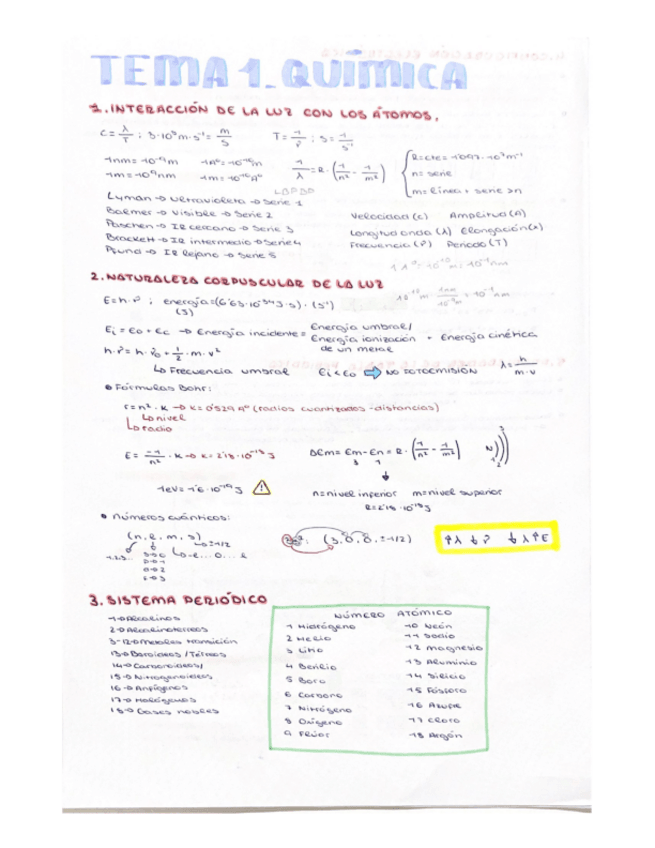 TEMA 1. QUÍMICA
1. INTERACCIÓN DE LA LUZ CON LOS ÁTOMOS.
C = λ/T ; 3·10⁸ m·s⁻¹ = m/s T = 1/ν ; s = 1/s⁻¹
1nm = 10⁻⁹m 1Aº = 10⁻¹⁰m 1/λ = R·(1/n² - 1/m²) R = cte = 1'097·10⁷m⁻¹
1m = 10⁹nm 1m = 10¹⁰Aº n = serie
LBPBP m = línea + serie >n
Lyman → ultravioleta → serie 1
Balmer → visible → serie 2 Velocidad (c) Amplitud (A)
Paschen → IR cercano → serie 3 Longitud onda (λ) Elongación (x)
Brackett → IR intermedio → serie 4 Frecuencia (ν) Periodo (T)
Pfund → IR lejano → serie 5
2. NATURALEZA CORPUSCULAR DE LA LUZ
E = h·ν ; energía = (6'63·10⁻³⁴J·s)·(s⁻¹)
(J)
Ei = Eo + Ec → Energía incidente = Energía umbral/ Energía ionización de un metal + Energía cinética
h·ν = h·ν₀ + 1/2·m·v²
↳ Frecuencia umbral Ei < Eo ➡ NO FOTOEMISIÓN λ = h/m·v
• Fórmulas Bohr:
r = n²·K → K = 0'529 Aº (radios cuantizados - distancias)
↳ nivel
↳ radio
E = -1/n²·K → K = 2'18·10⁻¹⁸J ΔEm = Em - En = R·(1/n² - 1/m²) N)))
3 1 1 2 3
1eV = 1'6·10⁻¹⁹J ⚠ n = nivel inferior m = nivel superior
R = 2'18·10⁻¹⁸J
• Números cuánticos:
(n, l, m, s) (3, 0, 0, ±1/2) ↑λ ↓ν ↓λ ↑E
↳ ±1/2
1,2,3... ↳ -l...0...l
3. SISTEMA PERIÓDICO
1 → Alcalinos
2 → Alcalinotérreos
3-12 → Metales transición
13 → Boroideos / Térreos
14 → Carbonoideos/
15 → Nitrogenoideos
16 → Anfígenos
17 → Halógenos
18 → Gases nobles
NÚMERO ATÓMICO
1 Hidrógeno 10 Neón
2 Helio 11 Sodio
3 Litio 12 Magnesio
4 Berilio 13 Aluminio
5 Boro 14 Silicio
6 Carbono 15 Fósforo
7 Nitrógeno 16 Azufre
8 Oxígeno 17 Cloro
9 Flúor 18 Argón